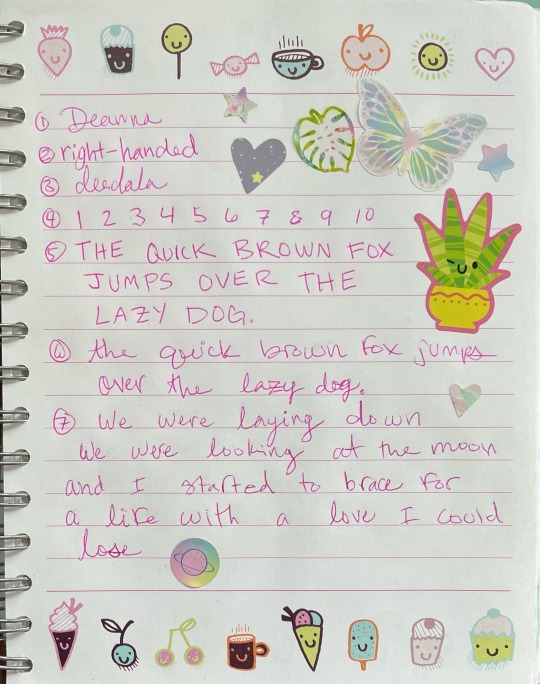 ① Deanna
② right-handed
③ deedala
④ 1 2 3 4 5 6 7 8 9 10
⑤ THE QUICK BROWN FOX
JUMPS OVER THE
LAZY DOG.
⑥ the quick brown fox jumps
over the lazy dog.
⑦ We were laying down
We were looking at the moon
and I started to brace for
a life with a love I could
lose